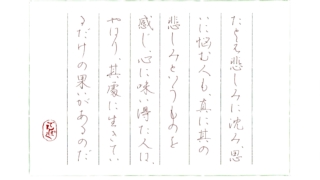 たとえ悲しみに沈み、思
いに悩む人も、真に其の
悲しみというものを
感じ、心に味い得た人は、
やはり、其處に生きてい
るだけの果いがあるのだ